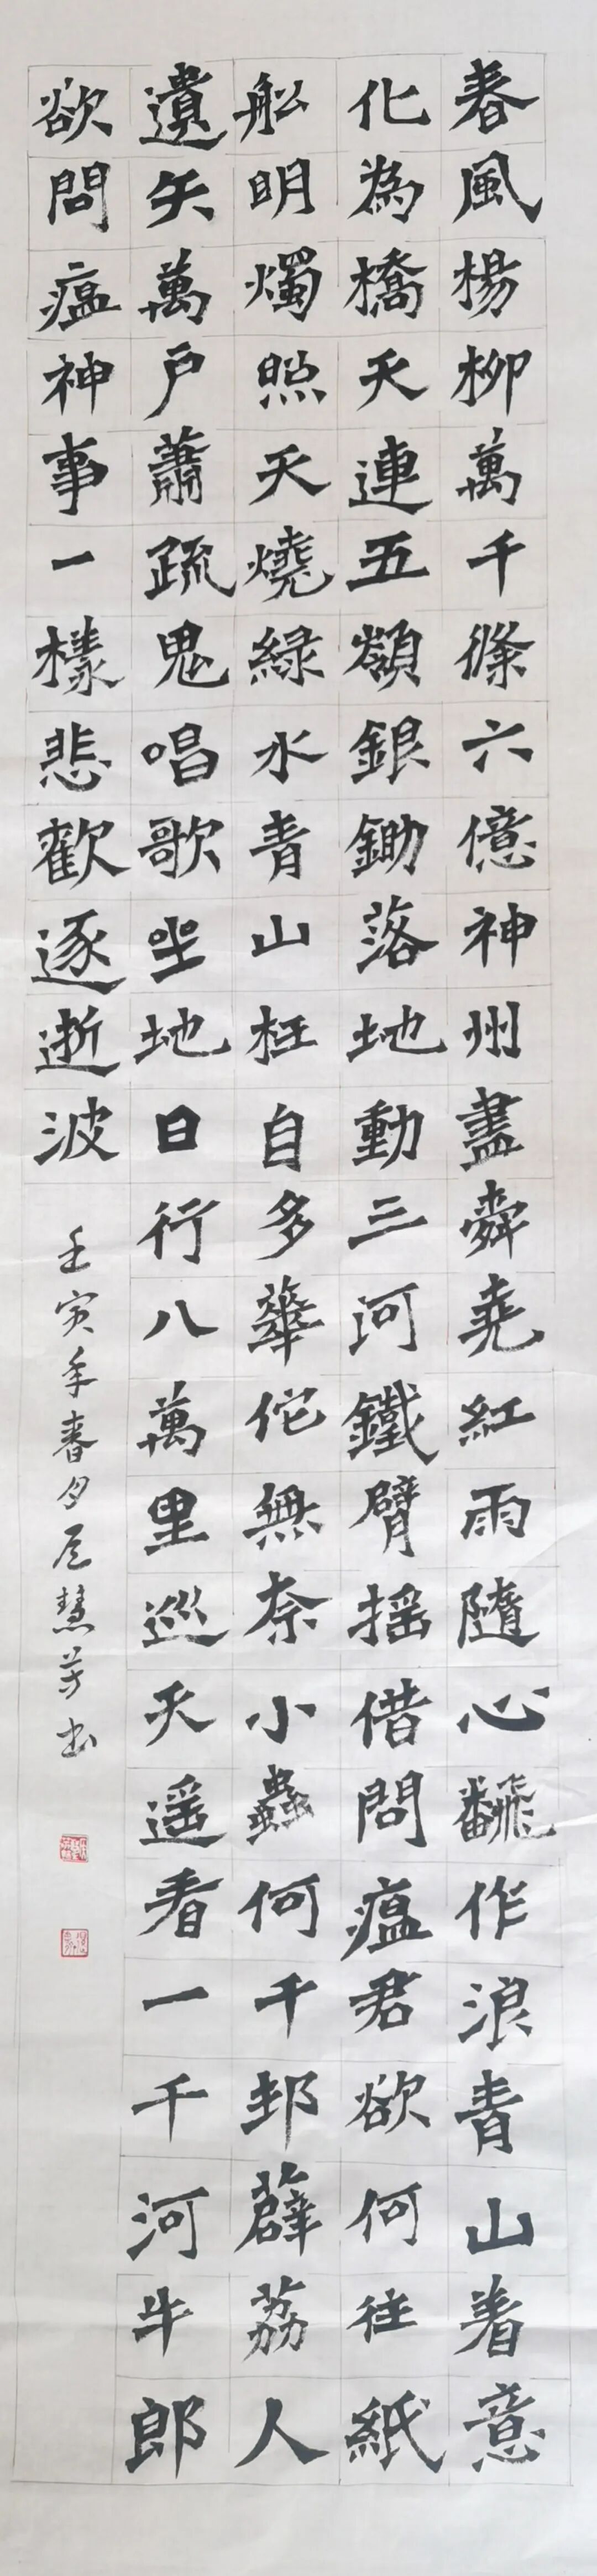 春風楊柳萬千條六億神州盡舜堯紅雨隨心飜作浪青山着意
化為橋天連五嶺銀鋤落地動三河鐵臂揺借問瘟君欲何往紙
船明燭照天燒緑水青山枉自多華佗無奈小蟲何千邨薜荔人
遺矢萬户蕭疏鬼唱歌坐地日行八萬里巡天遥看一千河牛郎
欲問瘟神事一樣悲歡逐逝波
壬寅年春慧芳书